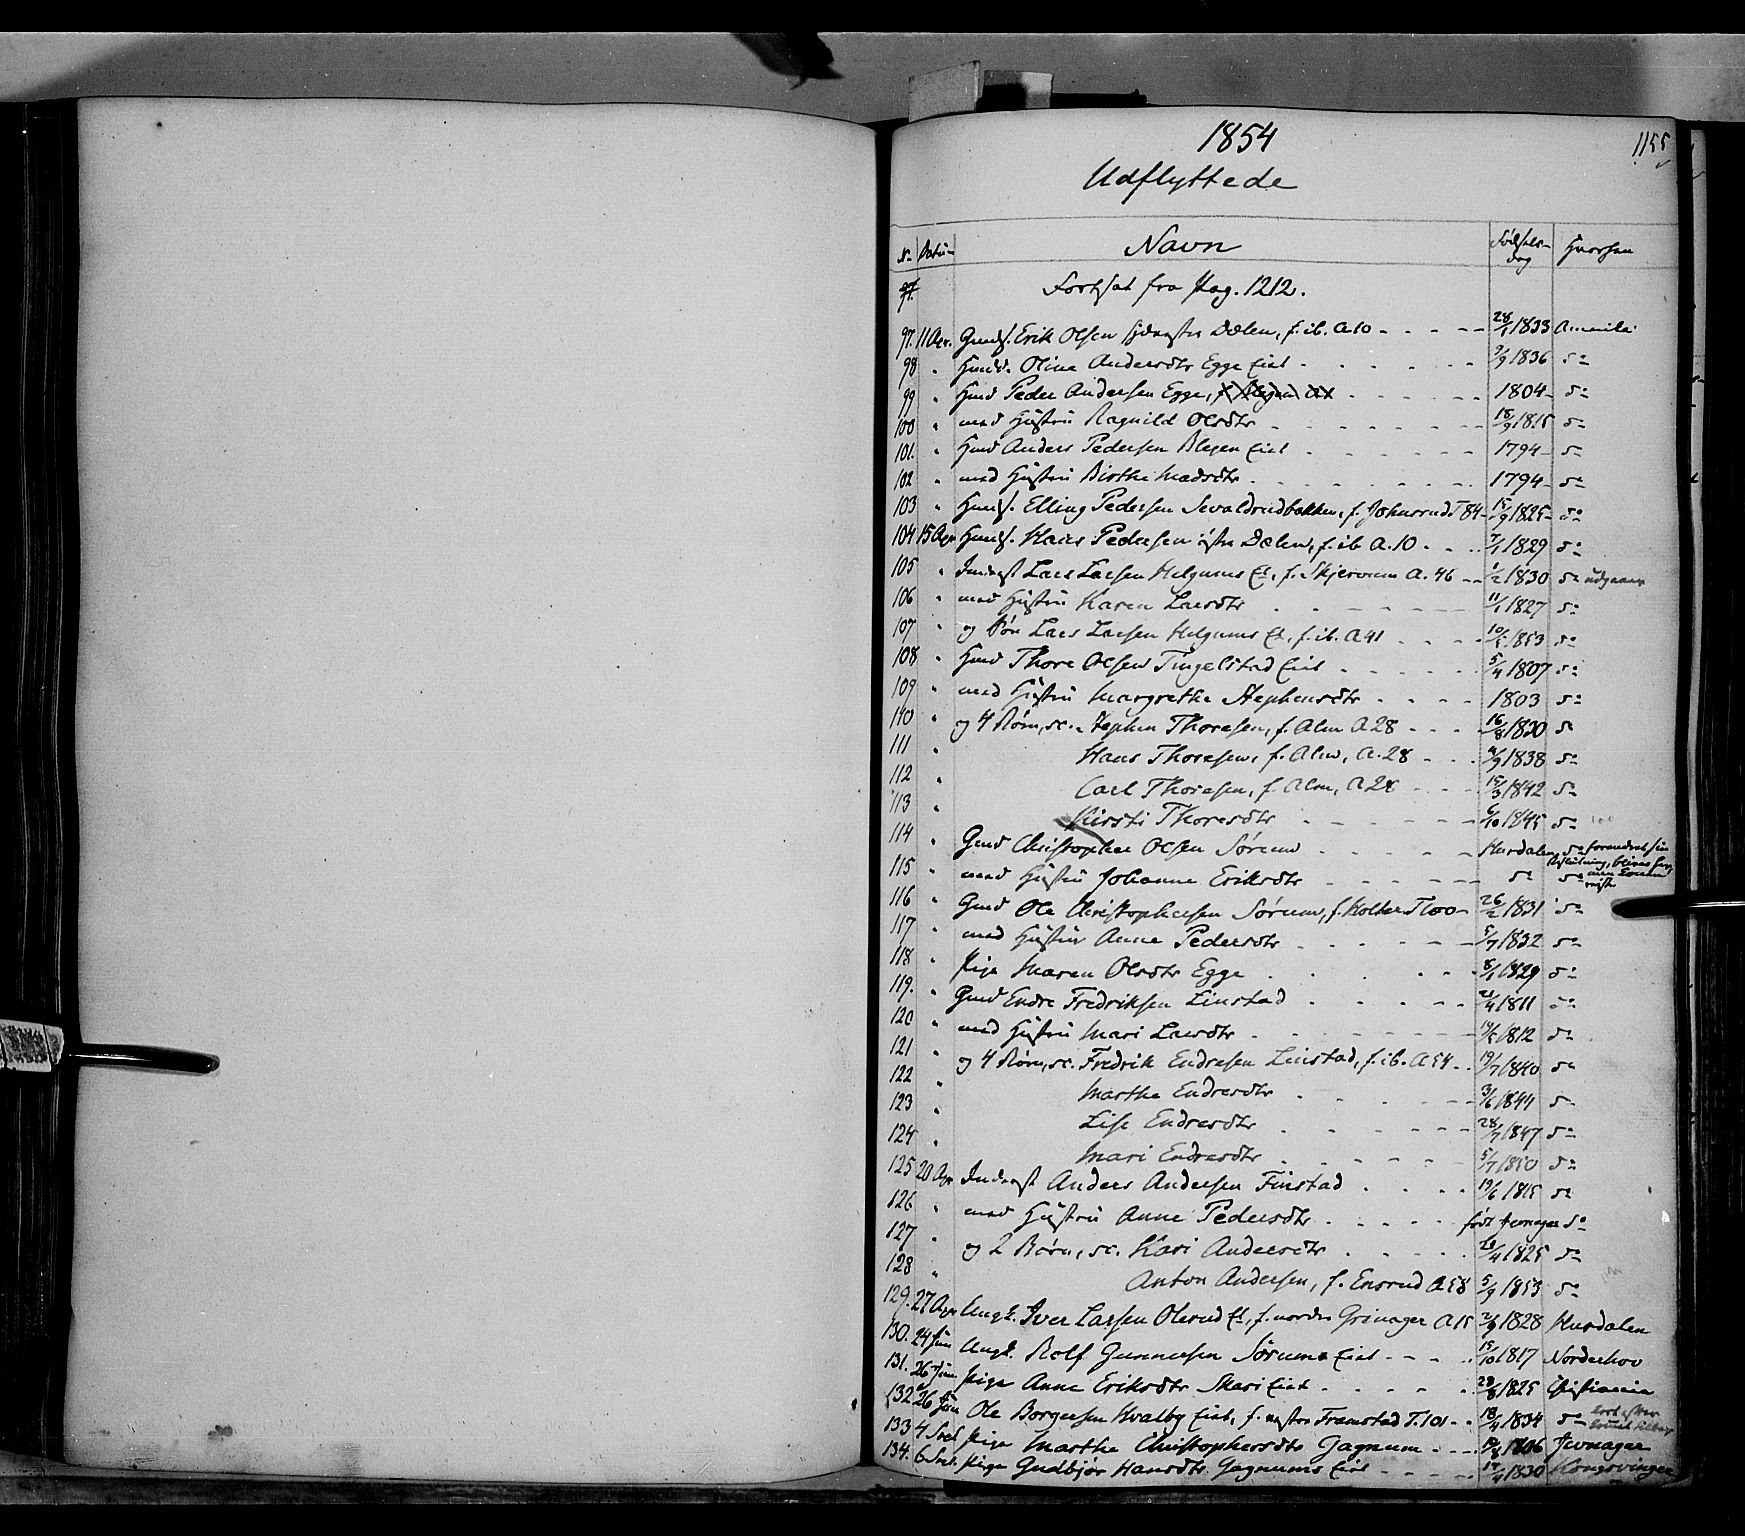 1854
1155
Udflyttede
Nr. Datum Navn Fødselsdag Hvorhen
Fortsat fra Pag. 1212.
97. 11 Apr. Erik Olsen Dælen, f. ib. A 10 28/1 1833 Amerika
98 " Oline Andersdtr Egge Eiet 2/9 1836 do
99 " Hmd Peder Andersen Egge, 1804 do
100 " med Hustru Ragnild Olsdtr 18/9 1815 do
101. " Hmd Anders Pedersen Blegen Eiet 1794 do
102 " med Hustru Birthe Madsdtr 1794 do
103 " Elling Pedersen Sevaldrudbakken, f. Johnsrud T 84 15/9 1825 do
104 15 Apr Hans Pedersen østre Dælen, f. ib A. 10 7/1 1829 do
105 " Inderst Lars Larsen Helgums Et, f. Skjervum A. 46 1/2 1830 do
106 " med Hustru Karen Larsdtr 11/1 1827 do
107 " og Søn Lars Larsen Helgums Et, f. ib. A 41 1853 do
108 " Hmd Thore Olsen Tingelstad Eiet 5/4 1807 do
109 " med Hustru Margrethe Stephensdtr 1803 do
110 " og 4 Børn, sc. Stephen Thoresen, f. Alm A 28 16/8 1830 do
111 " Hans Thoresen, f. Alm, A. 28 1838 do
112 " Carl Thoresen, f. Alm, A 28 15/3 1842 do
113 " Kirsti Thoresdtr 6/10 1845 do
114 " Gmd Christopher Olsen Sørum Hurdalen do forandret sin
Beslutning, bliver
115 " med Hustru Johanne Eriksdtr do do
116 " Gmd Ole Christophersen Sørum, f. Kolker T 100 26/2 1831 do
117 " med Hustru Anne Pedersdtr 5/7 1832 do
118 " Pige Maren Olsdtr Egge 8/1 1829 do
119. " Gmd Endre Fredriksen Linstad 1811 do
120 " med Hustru Mari Larsdtr 1812 do
121 " og 4 Børn, sc. Fredrik Endresen Linstad, f. ib. A 54 19/7 1840 do
122 " Marthe Endresdtr 3/6 1844 do
123 " Lise Endresdtr 28/7 1847 do
124 " Mari Endresdtr 5/7 1850 do
125 20 Apr Inderst Anders Andersen Finstad 19/6 1815 do
126 " med Hustru Anne Pedersdtr født Jevnager do
127 " og 2 Børn, sc. Kari Andersdtr 1825 do
128 " Anton Andersen, f. Ensrud A 58 5/9 1853 do
129. 27 Apr Ungk. Iver Larsen Olsrud Et, f. nordre Grinager A 15 2/9 1828 Hurdalen
130. 24 Juni Ungk. Rolf Gunnersen Sørums Eiet 15/10 1817 Norderhov
131. 26 Juni Pige Anne Eriksdtr Skari Eiet 28/8 1825 Christiania
132 26 Juni Ole Borgersen Hvalby Eiet, f. vestre Framstad T. 101 18/4 1834 do
133 4 Pige Marthe Christophersdtr Gagnum 1806 Jevnager
134. 6 Pige Gudbjør Hansdtr. Gagnums Eiet 1830 Kongsvinger